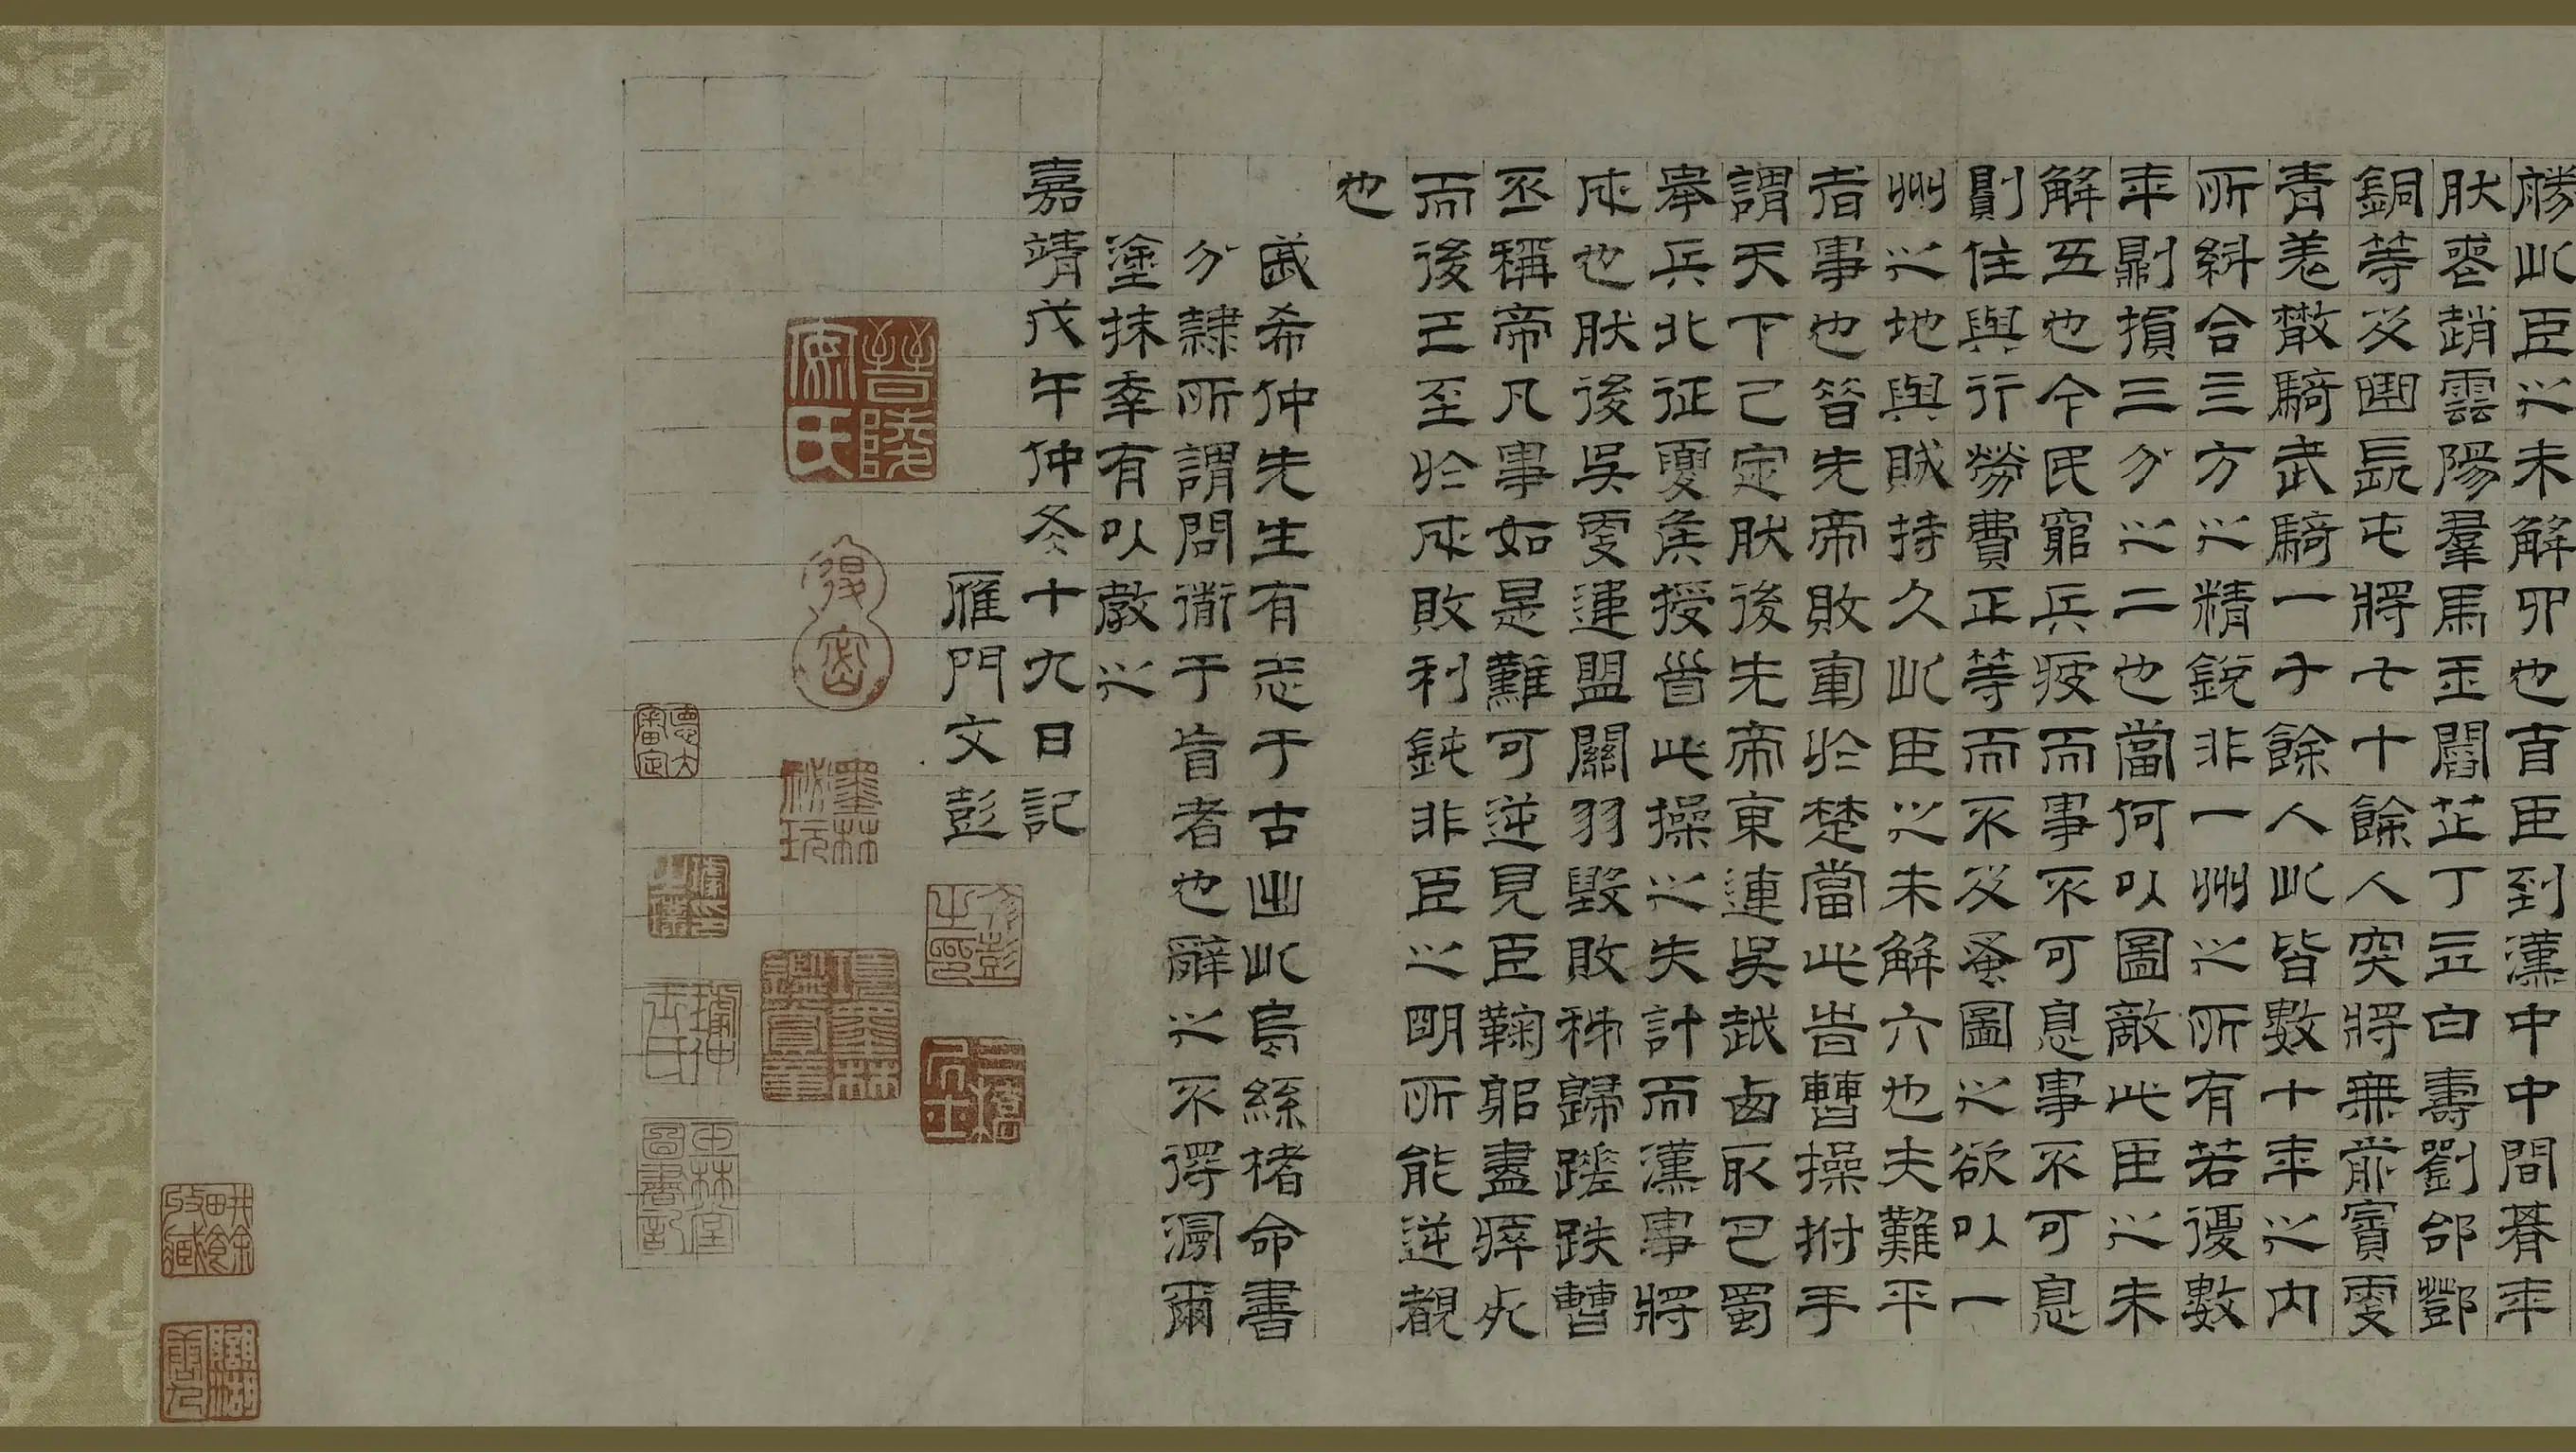 勝此臣之未解四也自臣到漢中中間朞年
肰喪趙雲陽羣馬玉閻芝丁立白壽劉郃鄧
銅等及曲長屯將七十餘人突將無前賨叟
青羌散騎武騎一千餘人此皆數十年之內
所糾合三方之精銳非一州之所有若復數
年則損三分之二也當何以圖敵此臣之未
解五也今民窮兵疲而事不可息事不可息
則住與行勞費正等而不及蚤圖之欲以一
州之地與賊持久此臣之未解六也夫難平
者事也昔先帝敗軍於楚當此時曹操拊手
謂天下已定肰後先帝東連吳越西取巴蜀
舉兵北征夏侯授首此操之失計而漢事將
成也肰後吳更違盟關羽毀敗秭歸蹉跌曹
丕稱帝凡事如是難可逆見臣鞠躬盡瘁死
而後已至於成敗利鈍非臣之明所能逆覩
也
戚希仲先生有志于古出此烏絲楮命書
分隸所謂問道于盲者也辭之不得漫爾
塗抹幸有以教之
嘉靖戊午仲冬十九日記
雁門文彭
文彭之印
三橋居士
墨林祕玩
項墨林鑑賞章